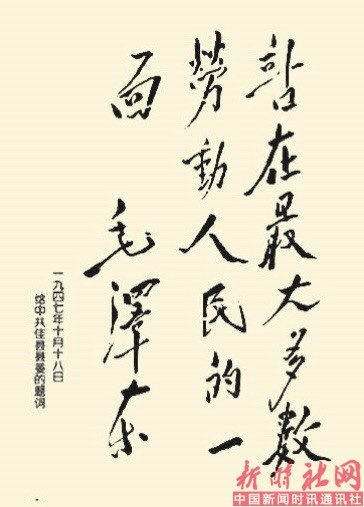 站在最大多數
勞動人民的一
面 毛澤东
一九四七年十月十八日
给中共佳县县委的题词
新时社网
中国新闻时讯通讯社